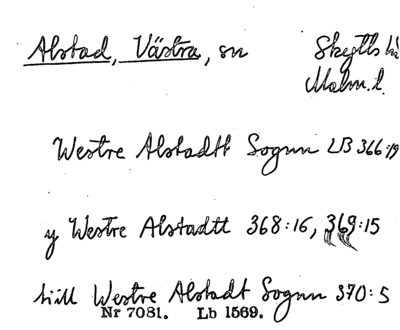 Alstad, Västra, sn Skytts hd
Malm. l.
Westre Alstadtt Sognn LB 366:19
y Westre Alstadtt 368:16, 369:15
till Westre Alstadt Sognn 370:5
Nr 7081. Lb 1569.